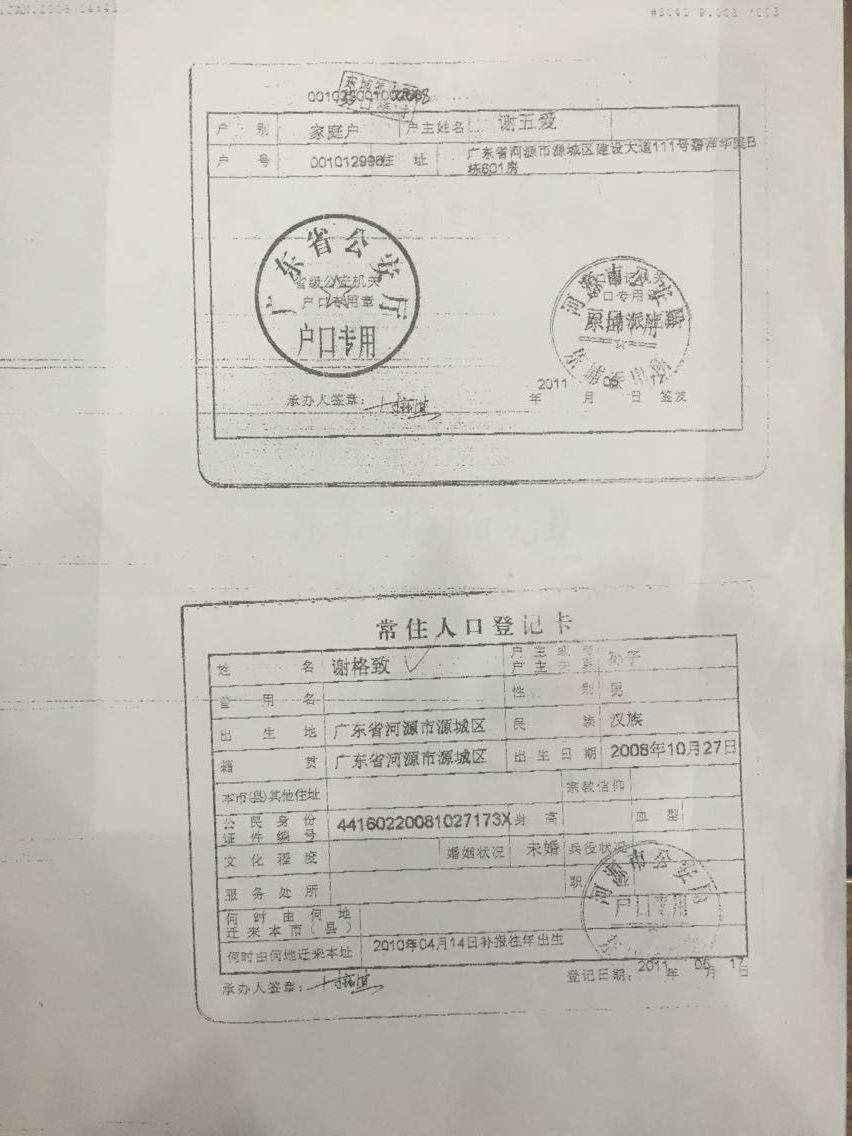 户 别 家庭户 户主姓名 谢五爱
户 号 001012998 住 址 广东省河源市源城区建设大道111号碧洋华庭B
栋601房
广东省公安厅
省级公安机关
户口专用章
户口专用
河源市公安局
户口专用
承办人签章:
2011 05 17
年 月 日 签发
常住人口登记卡
姓 名 谢格致 户主或与户主关系 孙子
曾用名 性 别 男
出生地 广东省河源市源城区 民 族 汉族
籍 贯 广东省河源市源城区 出生日期 2008年10月27日
本市(县)其他住址 宗教信仰
公民身份证件编号 44160220081027173X 身 高 血 型
文化程度 婚姻状况 未婚 兵役状况
服务处所 职
何时由何地迁来本市(县)
何时由何地迁来本址 2010年04月14日补报往年出生
河源市公安局
户口专用
承办人签章: 登记日期: 2011年05月17日